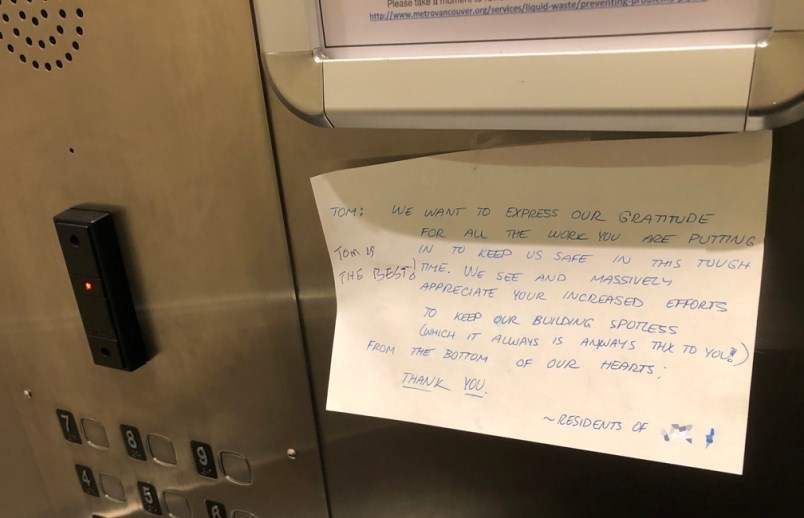 Please take a moment to
http://www.metrovancouver.org/services/liquid-waste/preventing-
TOM: WE WANT TO EXPRESS OUR GRATITUDE
FOR ALL THE WORK YOU ARE PUTTING
IN TO KEEP US SAFE IN THIS TOUGH
TIME. WE SEE AND MASSIVELY
APPRECIATE YOUR INCREASED EFFORTS
TO KEEP OUR BUILDING SPOTLESS
(WHICH IT ALWAYS IS ANYWAYS THX TO YOU!)
FROM THE BOTTOM OF OUR HEARTS:
THANK YOU.
~RESIDENTS OF
TOM IS
THE BEST!
7
8
9
4
5
6